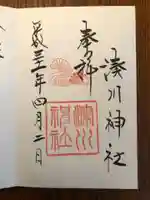 奉拝
湊川神社
平成三十一年四月二日
湊川神社